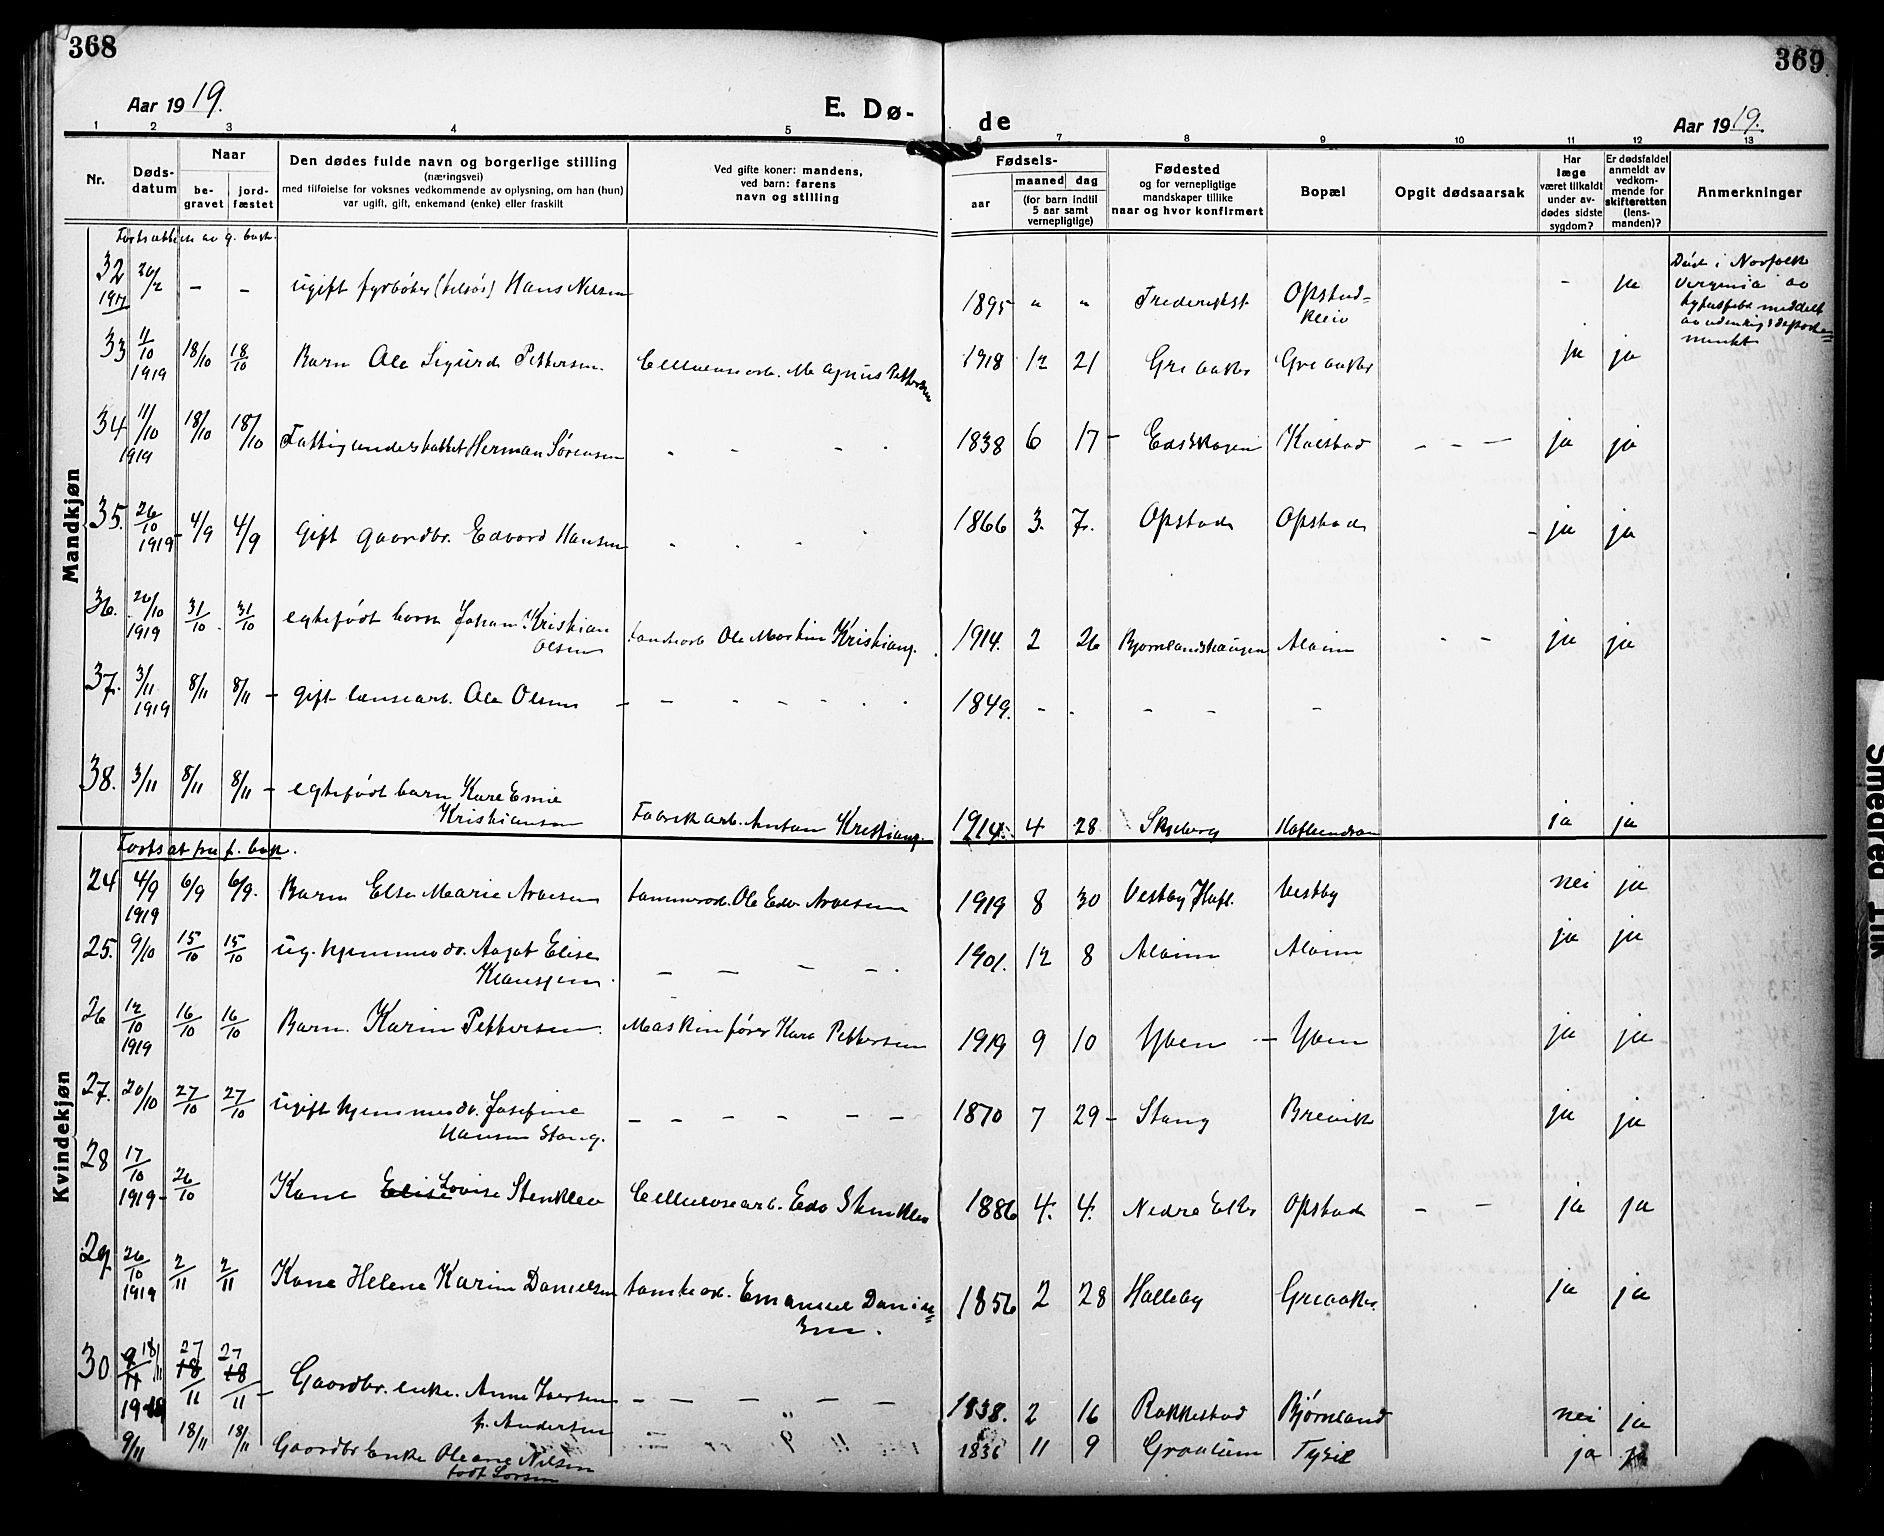 368
369
Aar 1919.
E. Dø-
de
Aar 1919.
1 2 3 4 5 6 7 8 9 10 11 12 13
Nr.
Døds-
datum
Naar
be-
gravet
jord-
fæstet
Den dødes fulde navn og borgerlige stilling
(næringsvei)
med tilføielse for voksnes vedkommende av oplysning, om han (hun)
var ugift, gift, enkemand (enke) eller fraskilt
Ved gifte koner: mandens,
ved barn: farens
navn og stilling
Fødsels-
aar
maaned
dag
(for barn indtil
5 aar samt
vernepligtige)
Fødested
og for vernepligtige
mandskaper tillike
naar og hvor konfirmert
Bopæl
Opgit dødsaarsak
Har
læge
været tilkaldt
under av-
dødes sidste
sygdom?
Er dødsfaldet
anmeldt av
vedkom-
mende for
skifteretten
(lens-
manden)?
Anmerkninger
Mandkjøn
32 20/2 - - ugift fyrbøter (tilsøs) Hans Nilsen 1895 " " Frederikst. Opstad- - ja Død i Norfolk
kleiv Virginia av
tyfusfeber meddelt
av utenriksdeparte-
mentet
33 11/10 1919 18/10 18/10 Barn Ole Sigurd Pettersen. Cellulosearb. Magnus Pettersen 1918 12 21 Greaaker Greaaker ja ja
34 11/10 1919 18/10 18/10 Fattigunderstøttet Herman Sørensen 1838 6 17 - Edskogen Kalstad - - - ja ja
35. 26/10 1919 - 4/9 4/9 gift gaardbr. Edvard Hansen 1866 3. 7. Opstad Opstad - ja ja
36. 26/10 1919 31/10 31/10 egtefødt barn Johan Kristian
Olsen Tomtearb Ole Martin Kristians. 1914. 2 26 Bjørnlandshaugen Alvim - - ja ja
37. 3/11 1919 8/11 8/11 - gift lensearb. Ole Olsen - - - - - - 1849. - - - - -
38. 3/11 8/11 8/11 - egtefødt barn Kare Emil
Kristiansen Fabrikarb. Anton Kristians. 1914. 4 28 Skjeberg Hafslundsøen ja ja
Kvindekjøn
Fortsat fra f. bok.
24 4/9 1919 6/9 6/9. Barn Else Marie Arvesen tømmerarb. Ole Edv. Arvesen 1919 8 30 Vestby Hafl. Vestby nei ja
25. 9/10 15/10 15/10 ug. hjemmedv. Aagot Elise
Klaussen. - - - - 1901. 12 8 Alvim Alvim ja ja
26 12/10 1919 16/10 16/10 Barn. Karin Pettersen. Maskinfører Karl Pettersen 1919 9 10 Yven - Yven ja ja
27. 20/10 27/10 27/10 ugift hjemmedv. Josefine
Hansen Stang. - - - - - - 1870 7 29 - Stang Brevik ja ja
28 17/10 1919 - 26/10 Kone Elise Lovise Stenklev Cellulosearb. Edv Stenklev 1886 4. 4. Nedre Elke Opstad - - ja ja
29. 26/10 1919 2/11 2/11 Kone Helene Karin Danielsen tomtearb. Emanuel Daniel-
sen. 1856 2 28 Halleby Greaaker. ja ja
30 18/11 27/11 27/11 - Gaardbr. enke. Anne Iversen
f. Andersen - - - - - - 1838. 2 16 Rakkestad Bjørnland nei ja
9/11 18/11 18/11 Gaardbr Enke Oleane Nilsen
født Larsen 1836 11 9 Graalum Tysil ja ja